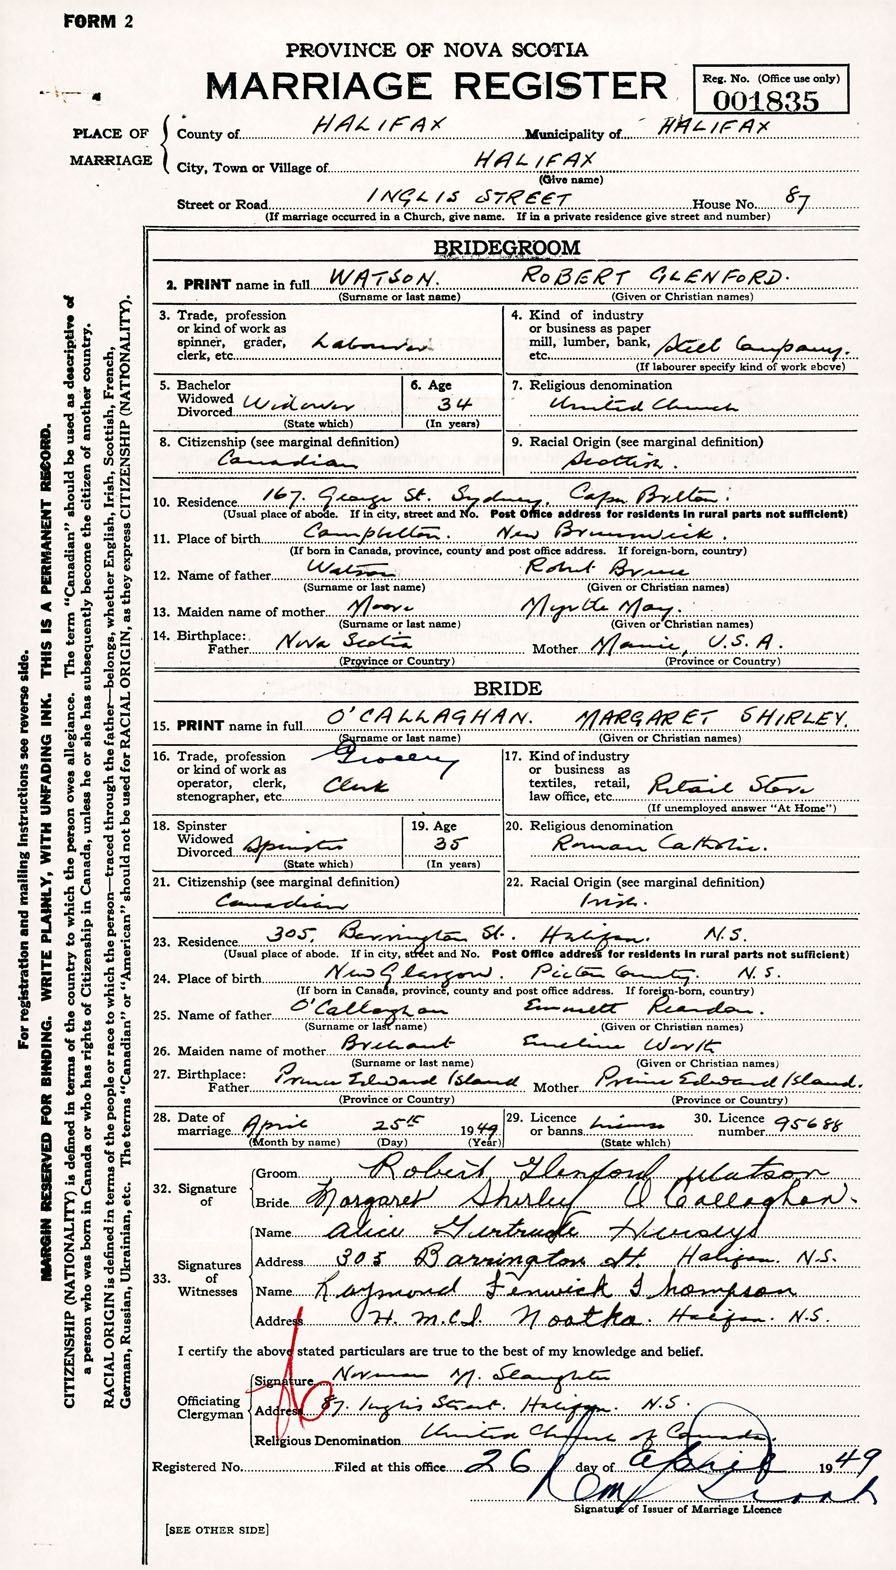 FORM 2
PROVINCE OF NOVA SCOTIA
MARRIAGE REGISTER
Reg. No. (Office use only)
001835
PLACE OF MARRIAGE
County of HALIFAX Municipality of HALIFAX
City, Town or Village of HALIFAX
(Give name)
Street or Road INGLIS STREET House No. 87
(If marriage occurred in a Church, give name. If in a private residence give street and number)
BRIDEGROOM
2. PRINT name in full WATSON. ROBERT GLENFORD.
(Surname or last name) (Given or Christian names)
3. Trade, profession or kind of work as spinner, grader, clerk, etc. Labourer
4. Kind of industry or business as paper mill, lumber, bank, etc. Steel Company.
(If labourer specify kind of work above)
5. Bachelor Widowed Divorced Widower
(State which)
6. Age 34
(In years)
7. Religious denomination
United Church
8. Citizenship (see marginal definition)
Canadian
9. Racial Origin (see marginal definition)
Scottish.
10. Residence 167. George St. Sydney, Cape Breton.
(Usual place of abode. If in city, street and No. Post Office address for residents in rural parts not sufficient)
11. Place of birth Campbelton. New Brunswick.
(If born in Canada, province, county and post office address. If foreign-born, country)
12. Name of father Watson Robert Bruce
(Surname or last name) (Given or Christian names)
13. Maiden name of mother Moore Myrtle May.
(Surname or last name) (Given or Christian names)
14. Birthplace: Father Nova Scotia Mother Manie, U.S.A.
(Province or Country) (Province or Country)
BRIDE
15. PRINT name in full O'CALLAGHAN. MARGARET SHIRLEY.
(Surname or last name) (Given or Christian names)
16. Trade, profession or kind of work as operator, clerk, stenographer, etc. Grocery Clerk
17. Kind of industry or business as textiles, retail, law office, etc. Retail Store
(If unemployed answer "At Home")
18. Spinster Widowed Divorced Spinster
(State which)
19. Age 35
(In years)
20. Religious denomination
Roman Catholic.
21. Citizenship (see marginal definition)
Canadian
22. Racial Origin (see marginal definition)
Irish.
23. Residence 305, Barrington St. Halifax. N.S.
(Usual place of abode. If in city, street and No. Post Office address for residents in rural parts not sufficient)
24. Place of birth New Glasgow. Pictou County. N.S.
(If born in Canada, province, county and post office address. If foreign-born, country)
25. Name of father O'Callaghan Emmett Reardon.
(Surname or last name) (Given or Christian names)
26. Maiden name of mother Emeline Worth
(Surname or last name) (Given or Christian names)
27. Birthplace: Father Prince Edward Island Mother Prince Edward Island.
(Province or Country) (Province or Country)
28. Date of marriage April 25th 1949
(Month by name) (Day) (Year)
29. Licence or banns license
(State which)
30. Licence number 95688
32. Signature of
Groom Robert Glenford Watson
Bride Margaret Shirley O'Callaghan.
33. Signatures of Witnesses
Name Alice Gertrude
Address 305 Barrington St. Halifax. N.S.
Name Raymond Fenwick Thompson
Address H.M.C.S. Nootka. Halifax. N.S.
I certify the above stated particulars are true to the best of my knowledge and belief.
Officiating Clergyman
Signature Norman M. Slaughter
Address 87. Inglis Street. Halifax. N.S.
Religious Denomination United Church of Canada.
Registered No. Filed at this office 26 day of April 1949
Signature of Issuer of Marriage Licence
[SEE OTHER SIDE]
For registration and mailing instructions see reverse side.
MARGIN RESERVED FOR BINDING. WRITE PLAINLY, WITH UNFADING INK. THIS IS A PERMANENT RECORD.
CITIZENSHIP (NATIONALITY) is defined in terms of the country to which the person owes allegiance. The term "Canadian" should be used as descriptive of
a person who was born in Canada or who has rights of Citizenship in Canada, unless he or she has subsequently become the citizen of another country.
RACIAL ORIGIN is defined in terms of the people or race to which the person—traced through the father—belongs, whether English, Irish, Scottish, French,
German, Russian, Ukrainian, etc. The terms "Canadian" or "American" should not be used for RACIAL ORIGIN, as they express CITIZENSHIP (NATIONALITY).